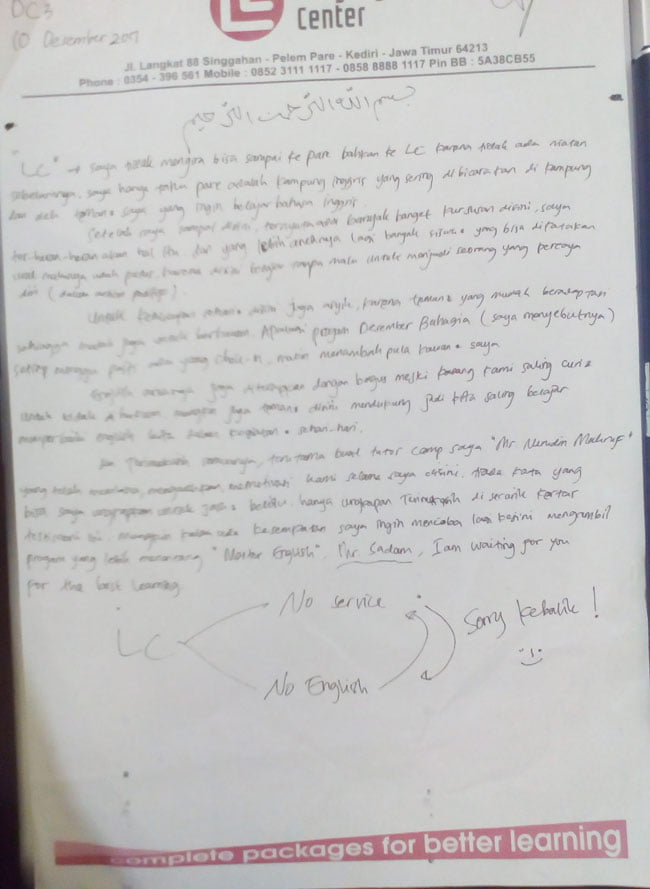 OC3
10 Desember 2017
Center
Jl. Langkat 88 Singgahan - Pelem Pare - Kediri - Jawa Timur 64213
Phone : 0354 - 396 561 Mobile : 0852 3111 1117 - 0858 8888 1117 Pin BB : 5A38CB55
بسم الله الرحمن الرحيم
"LC" → saya tidak mengira bisa sampai ke pare bahkan ke LC karena tidak ada niatan
sebelumnya, saya hanya tahu pare adalah kampung inggris yang sering dibicarakan di kampung
dan oleh teman2 saya yang ingin belajar bahasa inggris.
Setelah saya sampai disini, ternyata ada banyak banget kursusan disini, saya
ter-heran-heran akan hal itu, dan yang lebih anehnya lagi banyak siswa2 yang bisa dikatakan
malu untuk menjadi seorang yang percaya
diri (dalam
Untuk disini juga asyik, karena teman2 yang mudah beradaptasi
sehingga mudah juga untuk berteman. Apalagi program Desember Bahagia (saya menyebutnya)
setiap minggu pasti ada yang check-in, makin menambah pula kawan2 saya
English areanya juga diterapkan dengan bagus meski kadang kami saling curi2
untuk tidak juga teman2 disini mendukung jadi kita saling belajar
memperbaiki english kita dalam kegiatan2 sehari-hari.
Terimakasih semuanya, terutama buat tutor camp saya "Mr Nurudin Mashruf"
yang telah membina, mengarahkan, memotivasi kami selama saya disini, tiada kata yang
bisa saya ungkapkan untuk jasa2 beliau, hanya ungkapan Terimakasih di secarik kertas
testimoni ini. mungkin kalau ada kesempatan saya ingin mencoba lagi kesini mengambil
program yang lebih menantang "Master English". Mr. Sadam, I am waiting for you
for the best learning
LC
No service
No English
Sorry kebalik !
complete packages for better learning